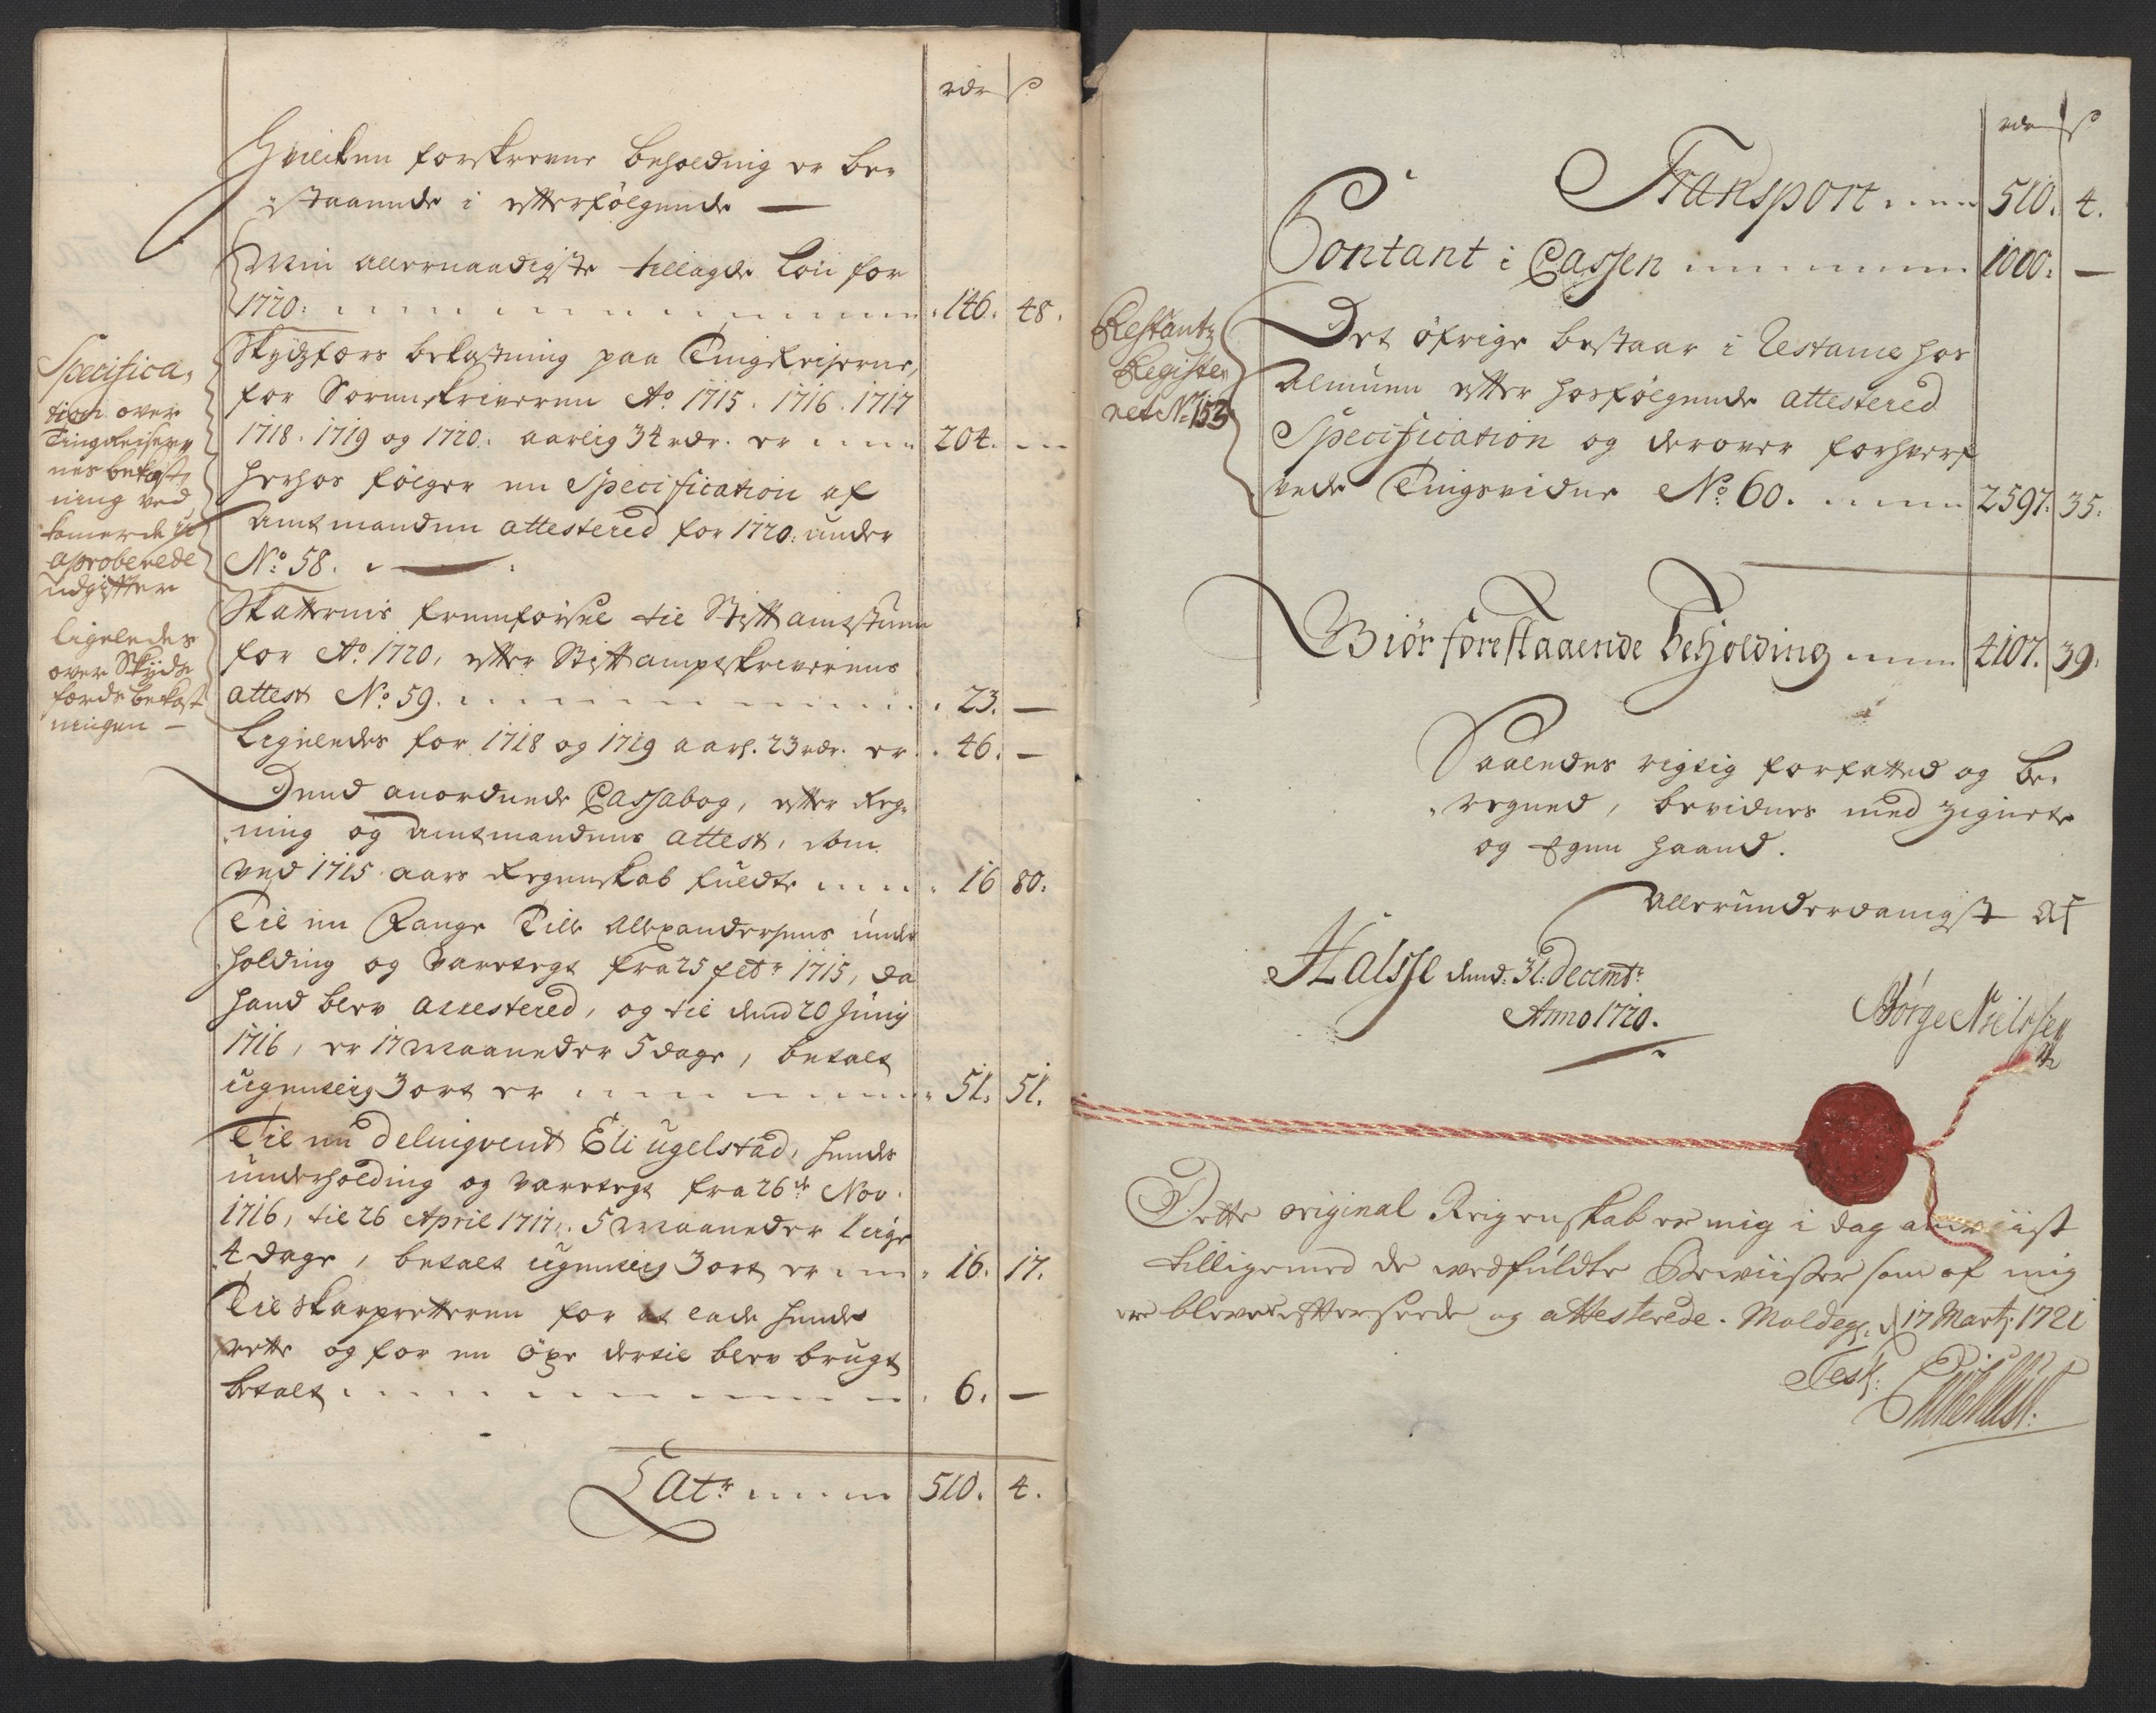 rdr ß
Hvilcken forskrevne beholdnig er be-
staaende i efterfølgende —
Min allernaadigste tillagde Lön for
1720: 146. 48.
Skydzfærs bekostning paa Tingreiserne,
for Sorenskriveren Ao. 1715. 1716. 1717
1718. 1719 og 1720. aarlig 34 rdr. er 204. —
herhos følger en Specification af
Amtmanden attestered for 1720: under
No. 58.
Skatternis fremförsel til Stiftamtstuen
for Ao. 1720, efter Stiftamptskriverens
attest No. 59. 23. —
Ligeledes for 1718 og 1719 aarl. 23 rdr. er 46. —
Dend anordnede Cassabog, efter Reg-
ning og Amtmandens attest, som
ved 1715 aars Regenskab fuldte 16 80.
Til en Fange Tille Allexandersens under
holding og Varetegt fra 25 febr 1715, da
hand blev arrestered, og til dend 20 Junij
1716, er 17 Maaneder 5 dage, betalt
ugentlig 3 ort er 51. 51.
Til en delinqvent Eli ugelstad, hendes
underholding og varetegt fra 26de Nov.
1716, til 26 April 1717. 5 Maaneder
4 dage, betalt ugentlig 3 ort er 16. 17.
Til skarpretteren for at lade hende
rette og for en Öxe dertil blev brugt
betalt 6. —
Latr 510. 4.
Specifica-
tion over
Tingreiser-
nes bekost-
ning ved
aproberede
udgifter
Ligeledes
over Skyds
færds bekost
ningen —
rdr ß
Transport 510. 4.
Contant i Cassen 1000. —
Restantz
Register
No 153
Det öfrige bestaar i Restance hos
Almuen efter hosfølgende attestered
Specification og derover forhverf
vede Tingsvidne No. 60. 2597. 35.
Giör forestaaende beholding 4107. 39.
Saaledes rigtig forfatted og be-
regned, bevidnes med Zignete
og Egen haand.
Allerunderdanigst af
Halsse dend: 31: Decembr
Anno 1720.
Börge Nielssen
Dette original Reigenskab er mig i dag anviist
tilligemed de vedfuldte Beviisser som af mig
ere bleven efterseede og attesterede. Moldeg. d 17 Martz. 1721
Test: